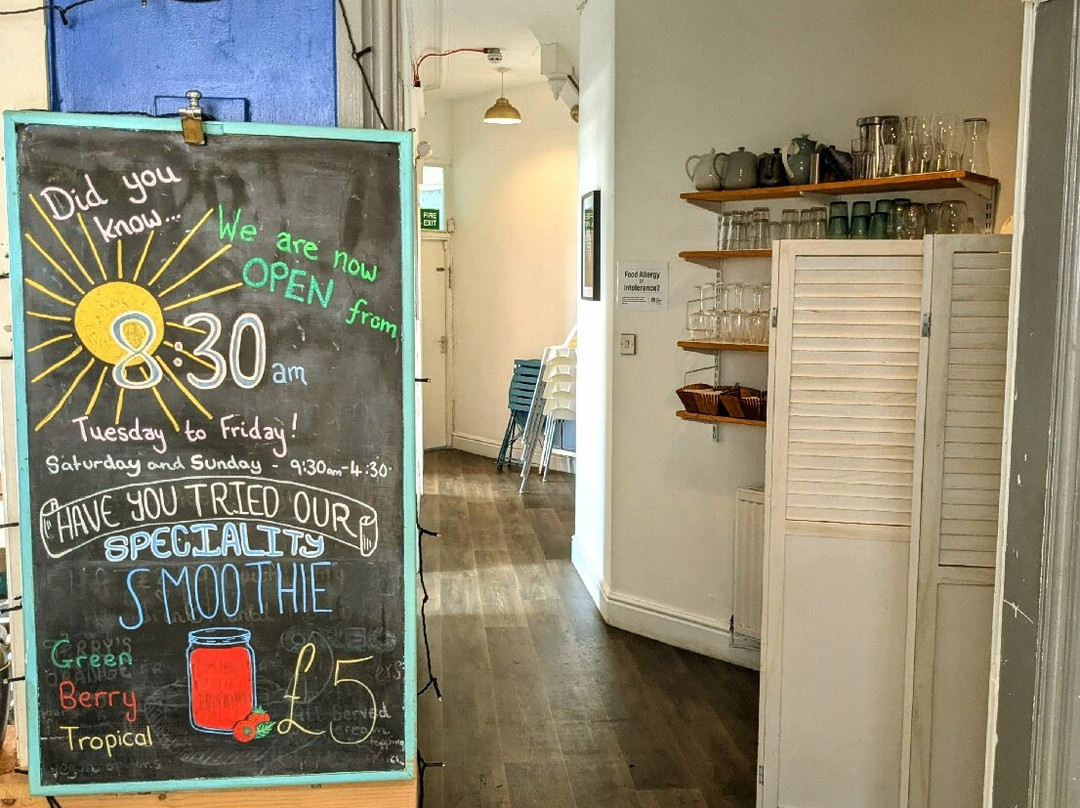 Did you
know...
We are now
OPEN from
8:30am
Tuesday to Friday!
Saturday and Sunday - 9:30am-4:30
HAVE YOU TRIED OUR
SPECIALITY
SMOOTHIE
Green
Berry
Tropical
£5
FIRE
EXIT
Food Allergy
or
Intolerance?